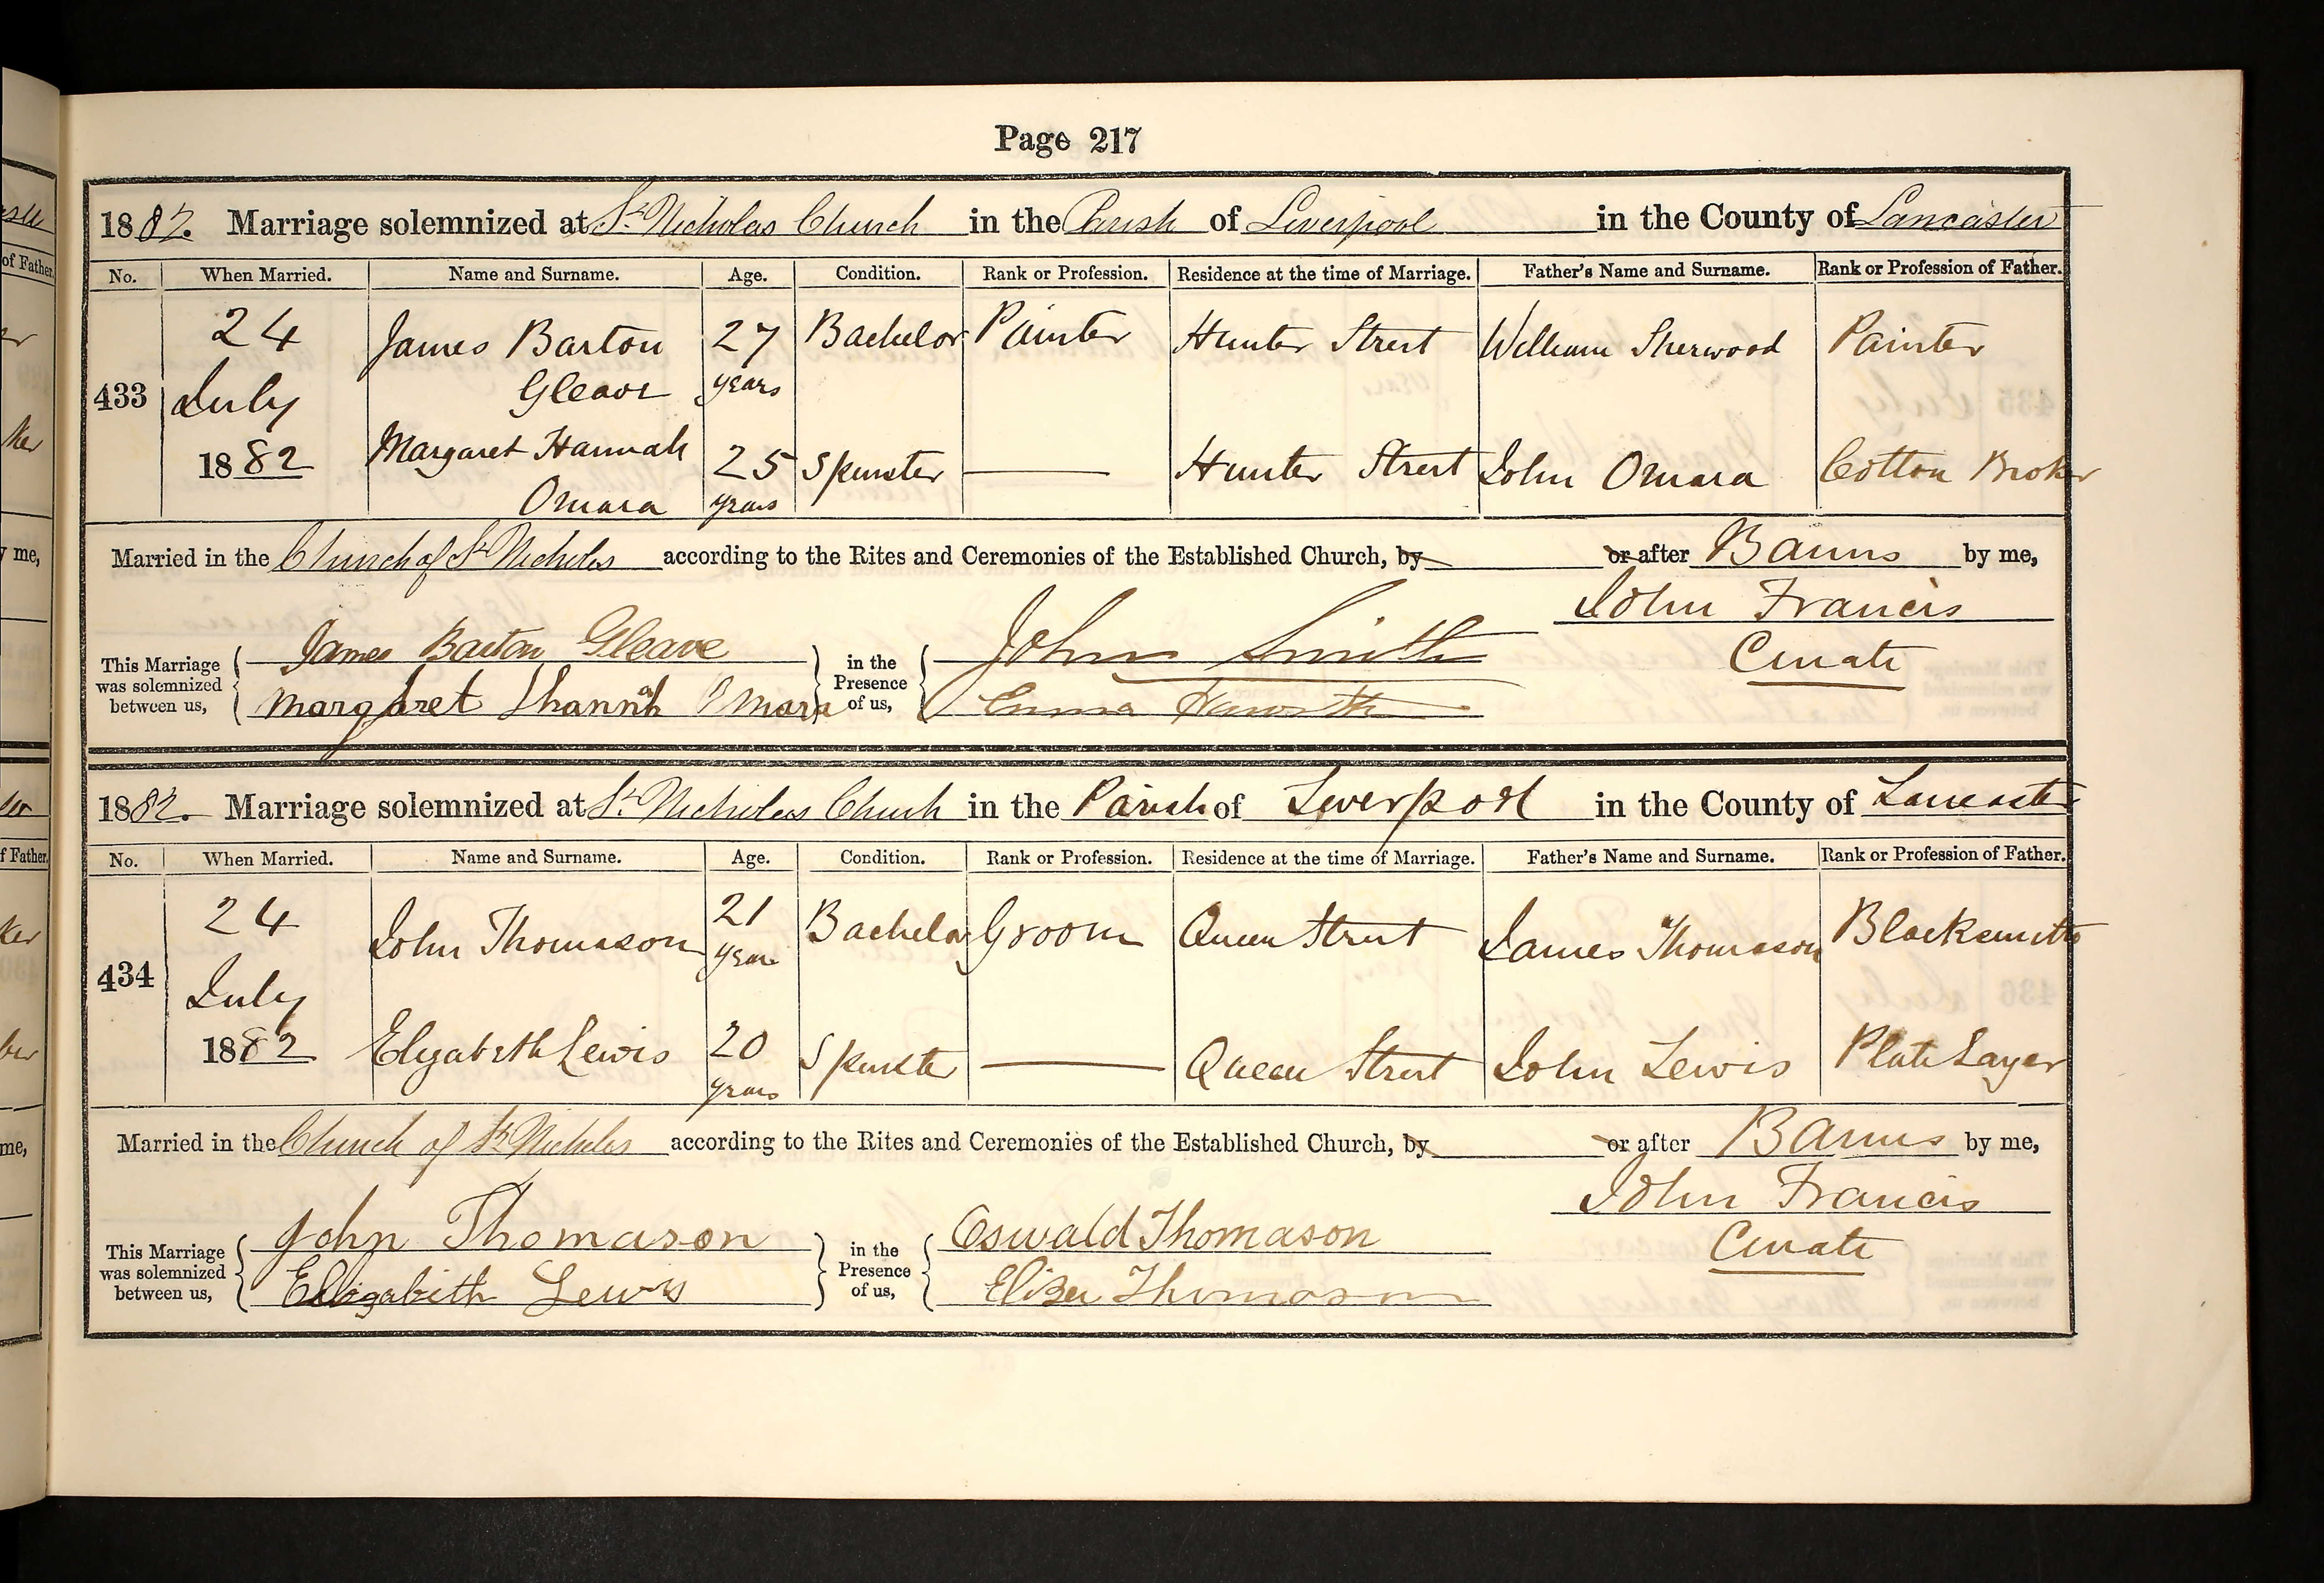 Page 217
1882. Marriage solemnized at St. Nicholas Church in the Parish of Liverpool in the County of Lancaster
No. When Married. Name and Surname. Age. Condition. Rank or Profession. Residence at the time of Marriage. Father's Name and Surname. Rank or Profession of Father.
433 24 July 1882 James Barton Gleave 27 years Bachelor Painter Hunter Street William Sherwood Painter
Margaret Hannah Omara 25 years Spinster Hunter Street John Omara Cotton Broker
Married in the Church of St. Nicholas according to the Rites and Ceremonies of the Established Church, by or after Banns by me,
John Francis
Curate
This Marriage was solemnized between us, James Barton Gleave in the Presence of us, John Smith
Margaret Hannah Omara Emma Haworth
1882. Marriage solemnized at St. Nicholas Church in the Parish of Liverpool in the County of Lancaster
No. When Married. Name and Surname. Age. Condition. Rank or Profession. Residence at the time of Marriage. Father's Name and Surname. Rank or Profession of Father.
434 24 July 1882 John Thomason 21 years Bachelor Groom Queen Street James Thomason Blacksmith
Elizabeth Lewis 20 years Spinster Queen Street John Lewis Plate Layer
Married in the Church of St. Nicholas according to the Rites and Ceremonies of the Established Church, by or after Banns by me,
John Francis
Curate
This Marriage was solemnized between us, John Thomason in the Presence of us, Oswald Thomason
Elizabeth Lewis Eliza Thomason